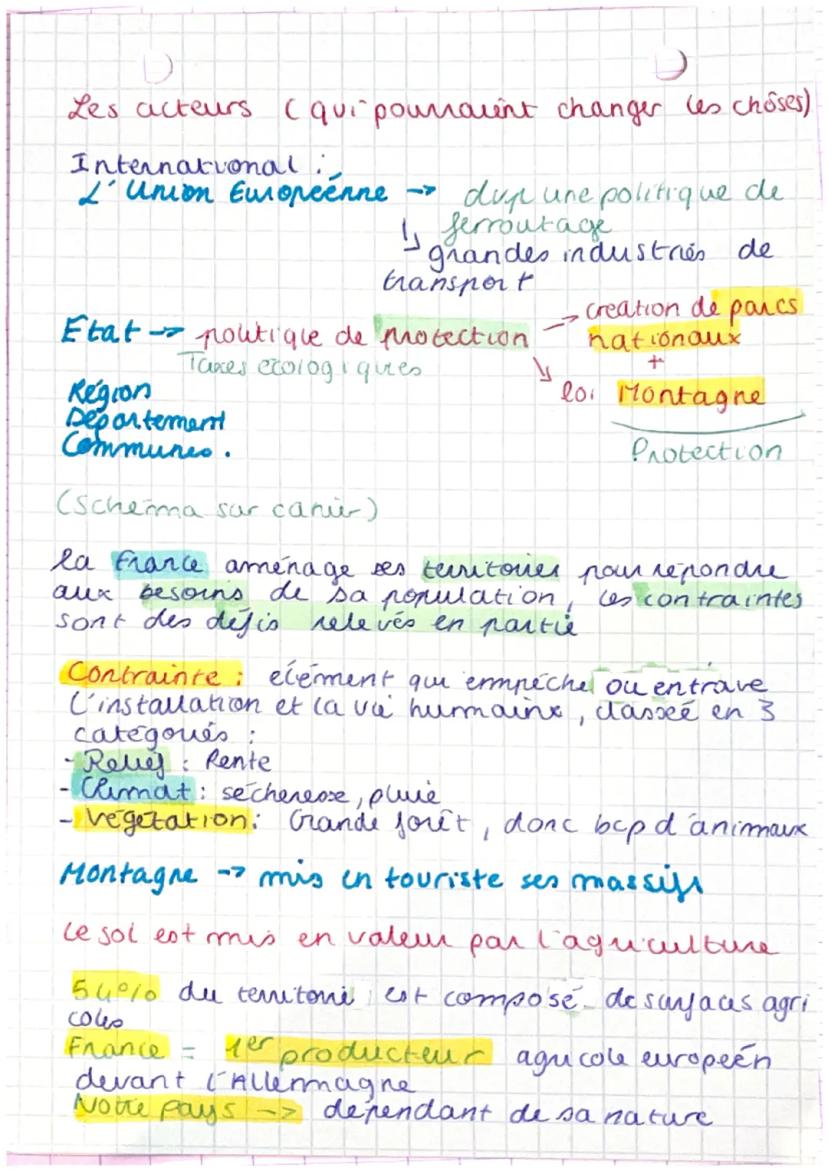 Les acteurs (qui pourraient changer les chôses)
International :
L'Union Européenne → dvp une politique de
ferroutage
↳ grandes industries de
transport
Etat → politique de protection → creation de parcs
nationaux
+
Taxes écologiques
↘ loi Montagne
Région
Département
Communes.
Protection
(Schéma sur cahier)
la France aménage ses territoires pour répondre
aux besoins de sa population, ces contraintes
sont des défis relevés en partie
Contrainte : elément qui empêche ou entrave
l'installation et la vie humaine, classée en 3
catégories :
- Relief : Pente
- Climat : sécheresse, pluie
- Végétation : Grande forêt, donc bcp d'animaux
Montagne → mis en touriste ses massifs
Le sol est mis en valeur par l'agriculture
54% du territoire est composé de surfaces agri
coles
France = 1er producteur agricole européen
devant l'Allermagne
Notre pays → dépendant de sa nature